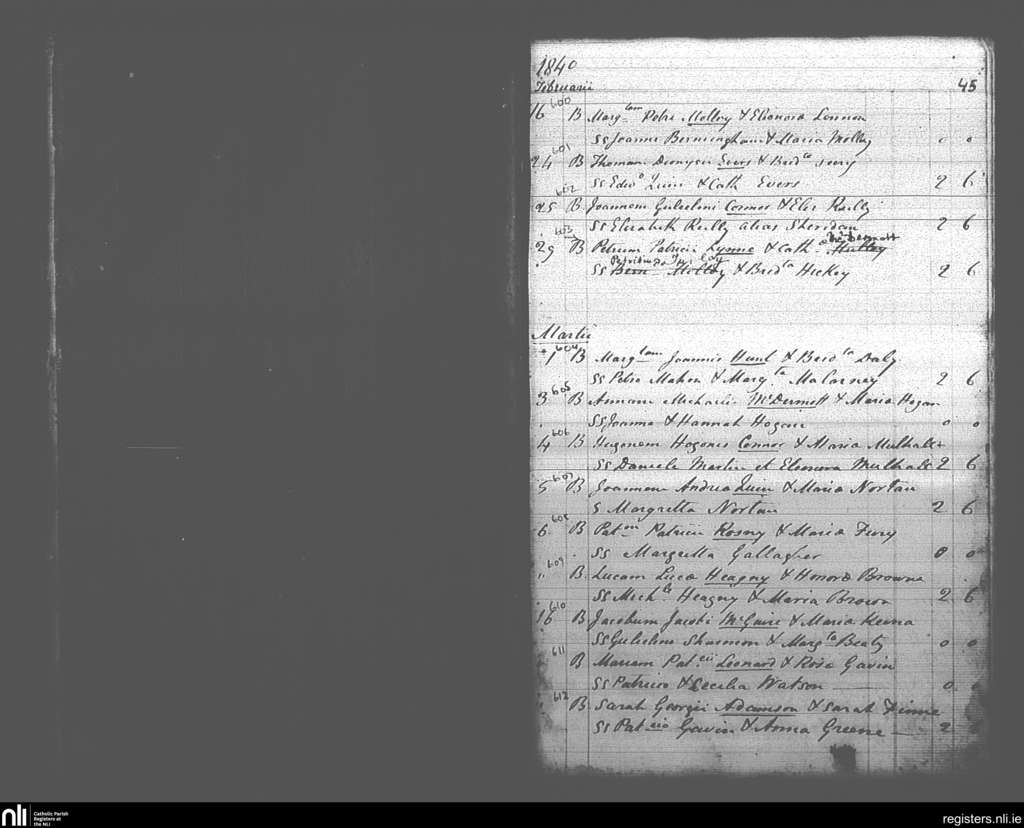 1840
Februarii 45
16 600 B Marg.tam Petri Molloy & Elionora Lennon
SS Joanne Bermingham & Maria Molloy 0 0
601 24 B Thomam Dionysii Evers & Brid.ta
SS Edw.o Quin & Cath Evers 2 6
602 25 B Joannem Gulielmi Connor & Eliz Reilly
SS Elizabeth Reilly alias Sheridan 2 6
603 29 B Petrum Patricii Lynne & Cath
SS Bern Molloy & Brid.ta Hickey 2 6
Martii
1 604 B Marg.tam Joannis Hunt & Brid.ta Daly
SS Petro Mahon & Marg.ta McCarney 2 6
3 605 B Annam Michaelis McDermott & Maria Hogan
SS Joanne & Hannah Hogan 0 0
4 606 B Hugonem Hogonis Connor & Maria Mulhall
SS Daniele Martin et Eleonora Mulhall 2 6
5 607 B Joannem Andrea Quin & Maria Nortan
S Margretta Nortan 2 6
6 608 B Pat.um Patricii & Maria Fury
SS Margretta Gallagher 0 0
" 609 B Lucam Luca Heagny & Honora Browne
SS Mich.le Heagny & Maria Brown 2 6
16 610 B Jacobum Jacobi McGuire & Maria Keena
SS Gulielmo Shannon & Marg.ta Beaty 0 0
611 B Mariam Pat.cii Leonard & Rosa Gavin
SS Patricio & Cecilia Watson 0 0
" 612 B Sarah Georgii Adamson & Sarah
SS Pat.cio Gavin & Anna Greene 2
nli Catholic Parish
Registers at
the NLI
registers.nli.ie